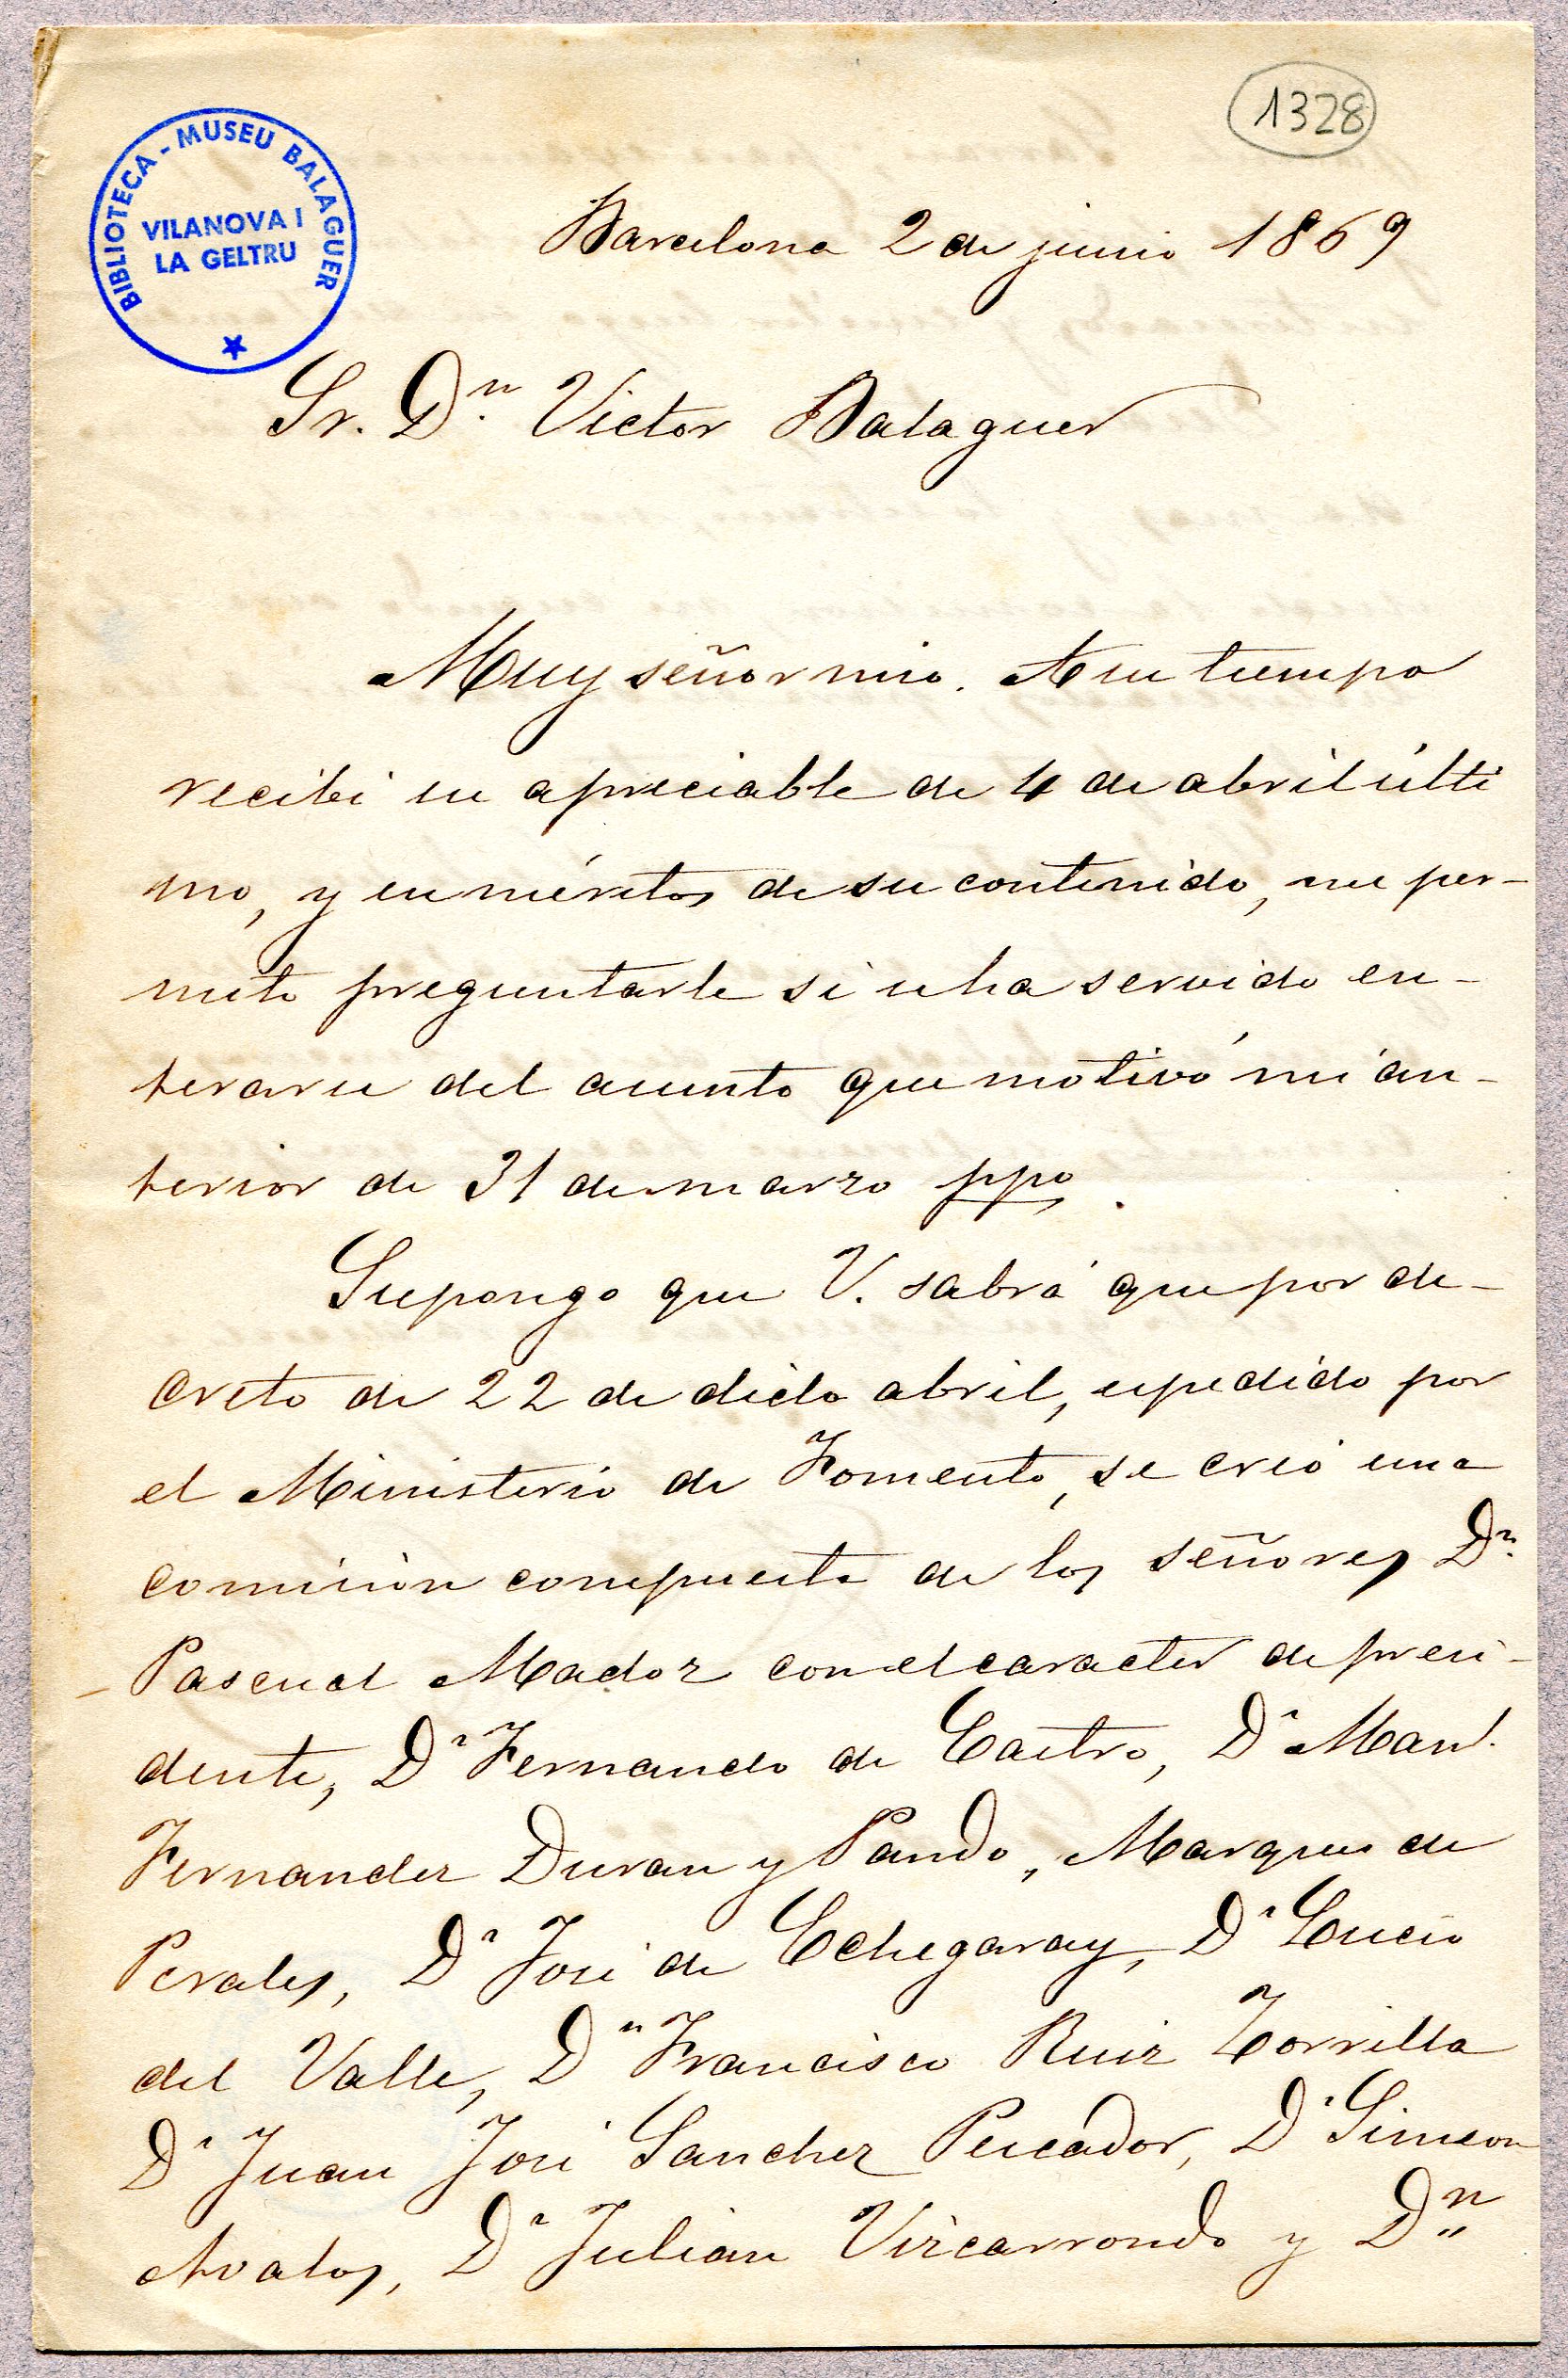 1328
BIBLIOTECA - MUSEU BALAGUER
VILANOVA I
LA GELTRU
Barcelona 2 de junio 1869
Sr. Dn. Victor Balaguer
Muy señor mio. A su tiempo
recibi su apreciable de 4 de abril últi
mo, y en méritos de su contenido, me per-
mito preguntarle si se ha servido en-
terarse del asunto que motivó mi an-
terior de 31 de marzo ppo.
Supongo que V. sabrá que por de-
creto de 22 de dicho abril, espedido por
el Ministerio de Fomento, se creó una
comision compuesta de los señores Dn.
Pascual Madoz con el caracter de presi-
dente, Dn Fernando de Castro, Dn Manl.
Fernandez Duran y Pando, Marques de
Perales, Dn José de Echegaray, Dn Lucio
del Valle, Dn Francisco Ruiz Zorrilla
Dn Juan José Sanchez Pescador, Dn Simeon
Avalos, Dn Julian Vizcarrondo y Dn